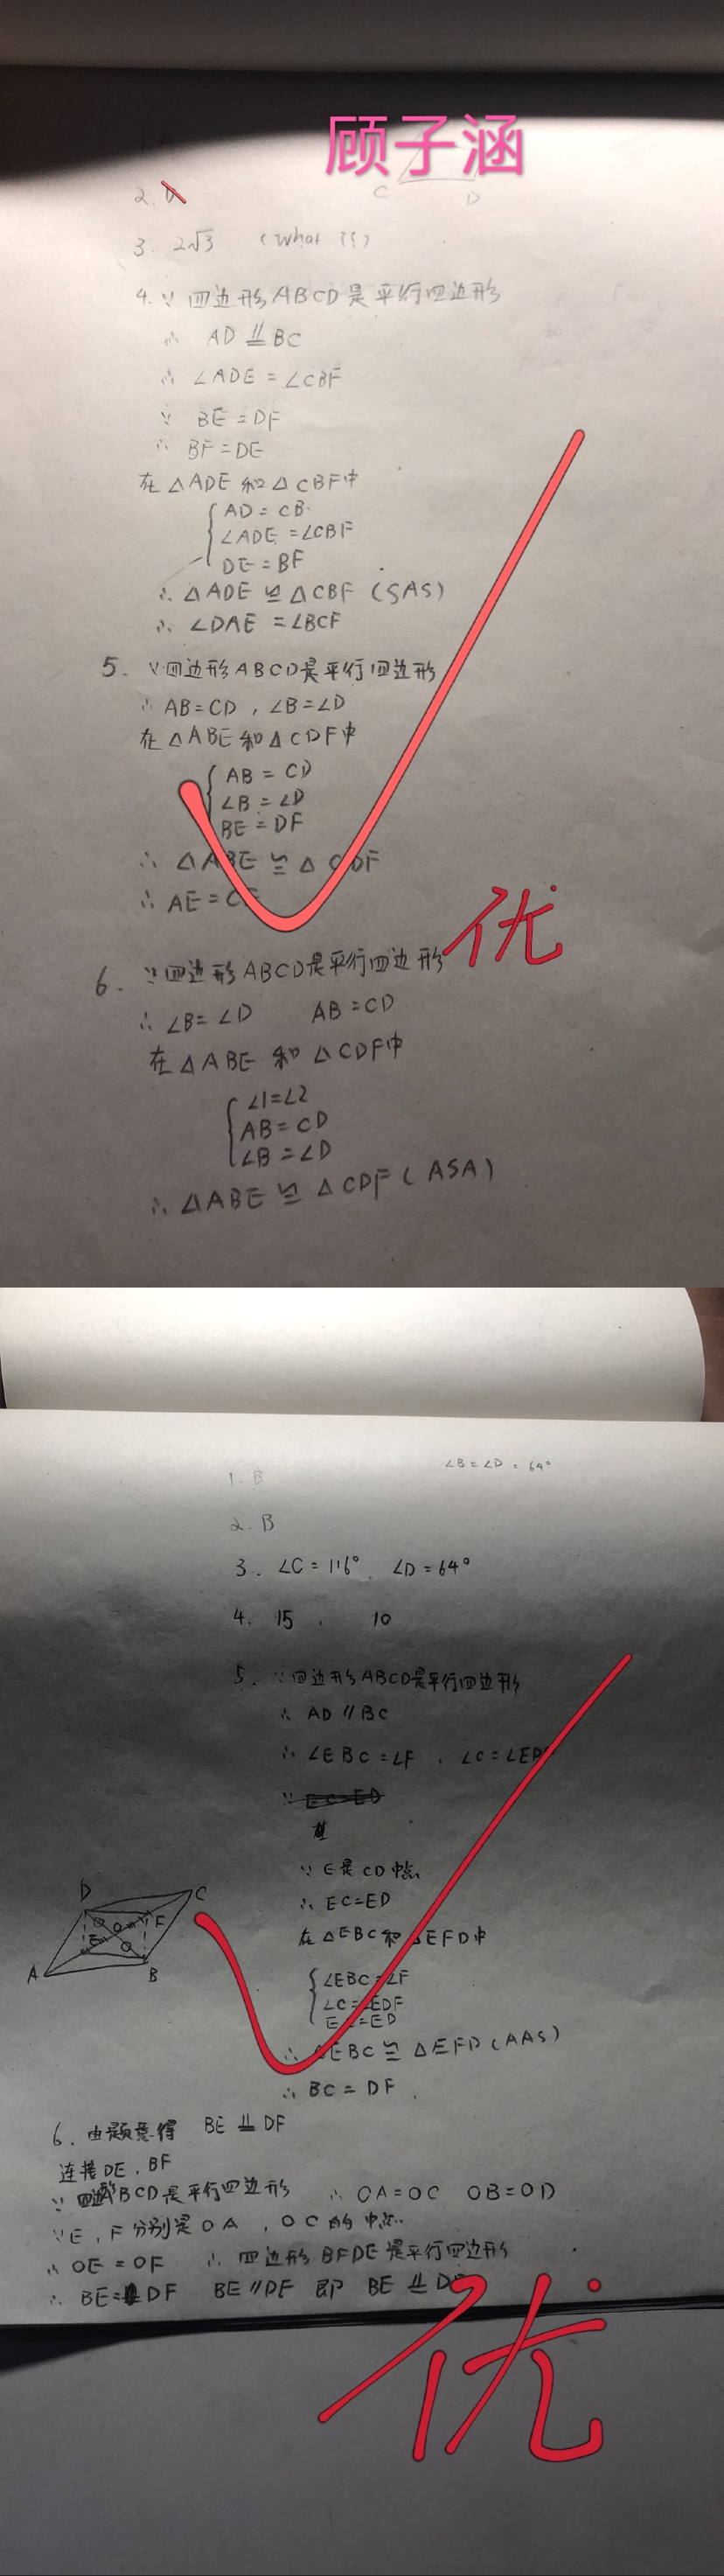 顾子涵
1. A
2. D
C D
3. 2√3 (What ??)
4. ∵ 四边形ABCD是平行四边形
∴ AD ∥= BC
∴ ∠ADE = ∠CBF
∵ BE = DF
∴ BF = DE
在△ADE和△CBF中
AD = CB
∠ADE = ∠CBF
DE = BF
∴ △ADE ≌ △CBF (SAS)
∴ ∠DAE = ∠BCF
5. ∵四边形ABCD是平行四边形
∴ AB=CD , ∠B=∠D
在△ABE和△CDF中
AB = CD
∠B = ∠D
BE = DF
∴ △ABE ≌ △CDF
∴ AE = CF
优
6. ∵四边形ABCD是平行四边形
∴ ∠B=∠D AB=CD
在△ABE 和 △CDF中
∠1=∠2
AB=CD
∠B=∠D
∴ △ABE ≌ △CDF (ASA)
∠B=∠D=64°
1. B
2. B
3. ∠C=116° ∠D=64°
4. 15 , 10
5. ∵四边形ABCD是平行四边形
∴ AD∥BC
∴ ∠EBC=∠F , ∠C=∠EDF
∵ EC=ED
∵ E是CD中点
∴ EC=ED
在△EBC和△EFD中
∠EBC=∠F
∠C=∠EDF
EC=ED
∴ △EBC≌△EFD(AAS)
∴ BC=DF
D C
O F
E
A B
6. 由题意得 BE ∥= DF
连接DE , BF
∵ 四边形ABCD是平行四边形 ∴ OA=OC OB=OD
∵E , F分别是OA , OC的中点
∴ OE=OF ∴ 四边形BFDE是平行四边形
∴ BE=DF BE∥DF 即 BE ∥= DF
优